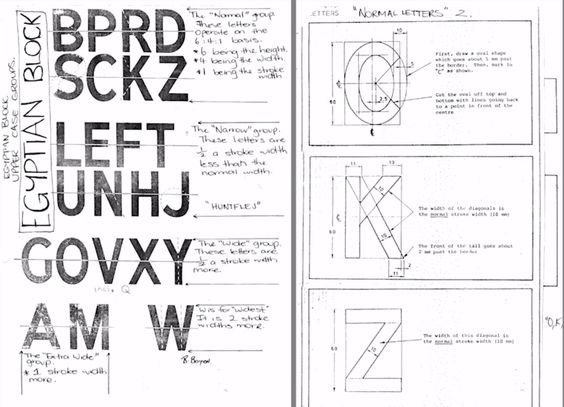 EGYPTIAN BLOCK
UPPER CASE GROUPS.
EGYPTIAN BLOCK
BPRD
SCKZ
The "Normal" group.
These letters
operate on the
6:4:1 basis.
*6 being the height.
*4 being the width
*1 being the stroke
width
LEFT
UNHJ
The "Narrow" group.
These letters are
½ a stroke width
less than the
normal width.
"HUNTFLEJ"
GOVXY
incl. Q
The "Wide" group.
These letters are
½ a stroke width
more.
AM W
W is for "Widest"
It is 2 stroke
widths more.
The "Extra Wide"
group.
* 1 stroke width
more.
LETTERS "NORMAL LETTERS" 2.
10
60
2,5
First, draw a oval shape
which goes about 1 mm past
the border. Then, mark in
"C" as shown.
Cut the oval off top and
bottom with lines going back
to a point in front of the
centre
11
13
10
60
10
2
11
The width of the diagonals
is the normal stroke width (10 mm)
The front of the tail goes about
2 mm past the border
60
10
The width of this diagonal is
the normal stroke width (10 mm)